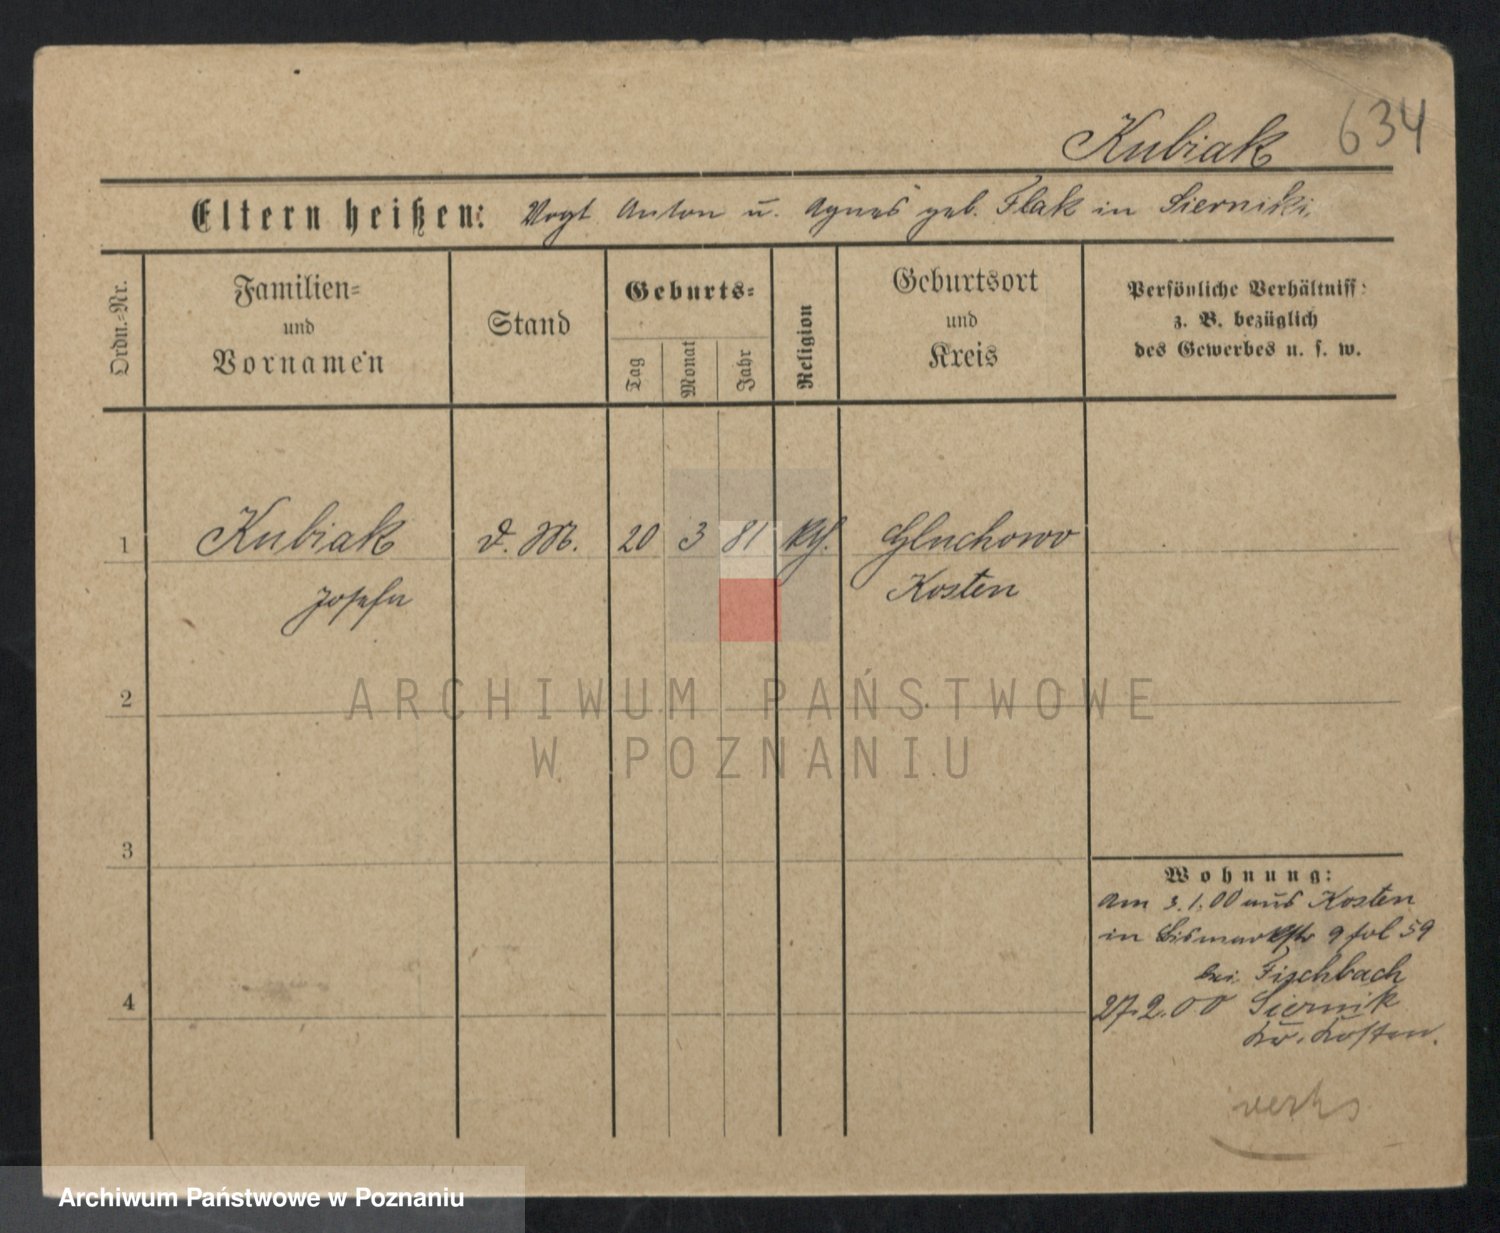 Kubiak 634
Eltern heißen: Vogt Anton u. Agnes geb. Flak in Sierniki
Ordn.-Nr.
Familien-
und
Vornamen
Stand
Geburts-
Tag
Monat
Jahr
Religion
Geburtsort
und
Kreis
Persönliche Verhältniss:
z. B. bezüglich
des Gewerbes u. s. w.
1 Kubiak d. M. 20 3 81 kth. Gluchowo
Josefa Kosten
2
3
4
Wohnung:
am 3.1.00 aus Kosten
in Bismarkstr 9 fol 59
bei Fischbach
27.2.00 Siernik
Kr. Kosten.
ARCHIWUM PAŃSTWOWE
W POZNANIU
Archiwum Państwowe w Poznaniu